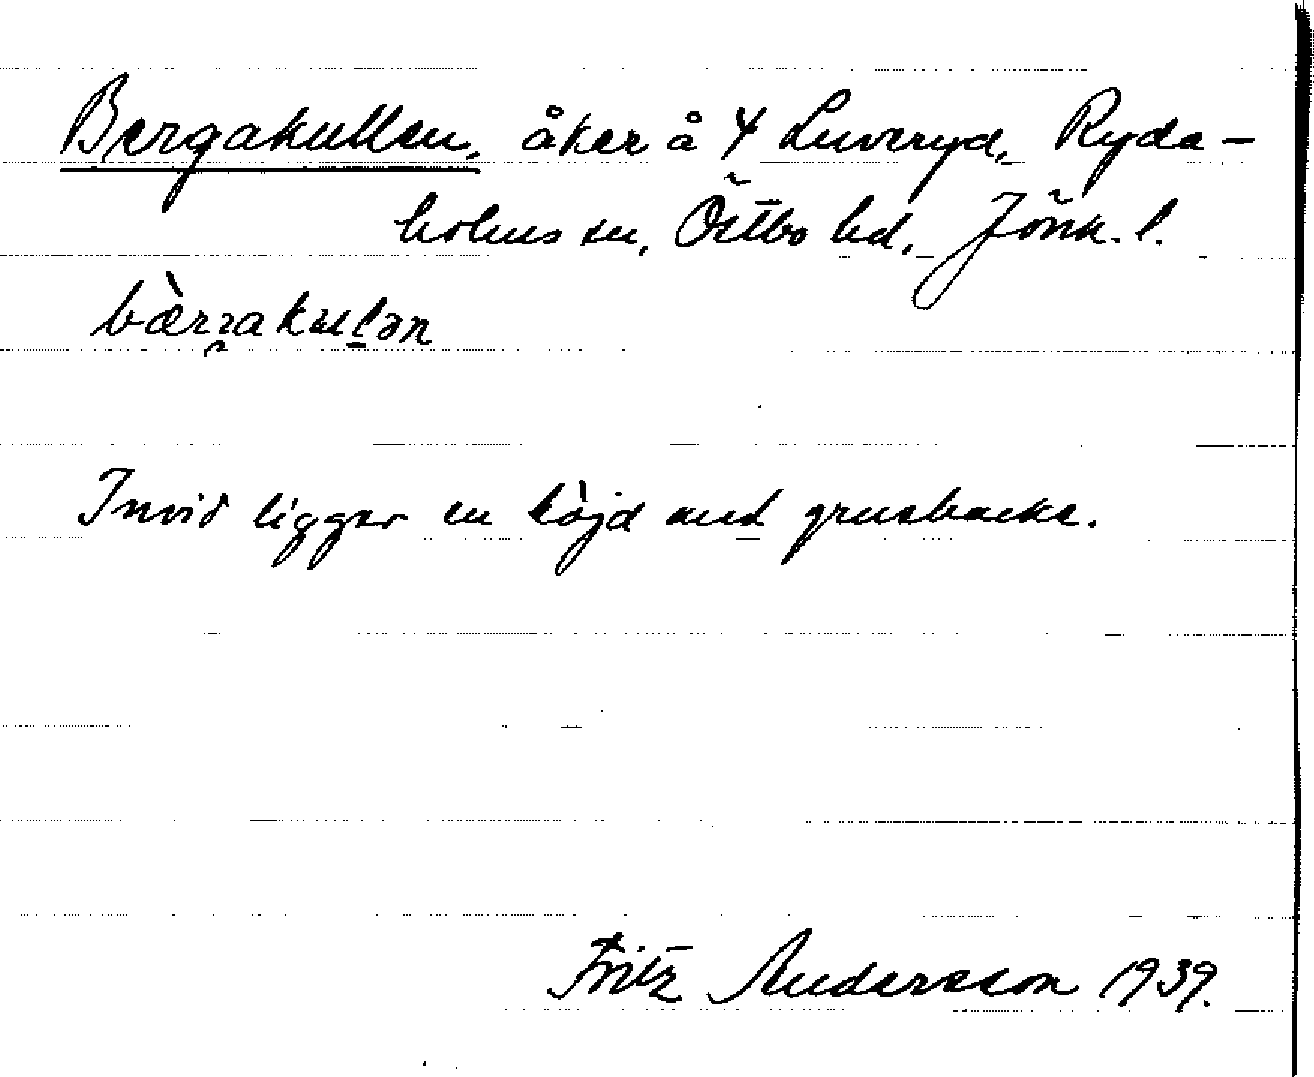 Bergakullen, åker å 4 Luveryd, Ryda-
holms sn, Östbo hd, Jönk. l.
bærᶎakulən
Invid ligger en höjd med grusbacke.
Fritz Andersson 1939.